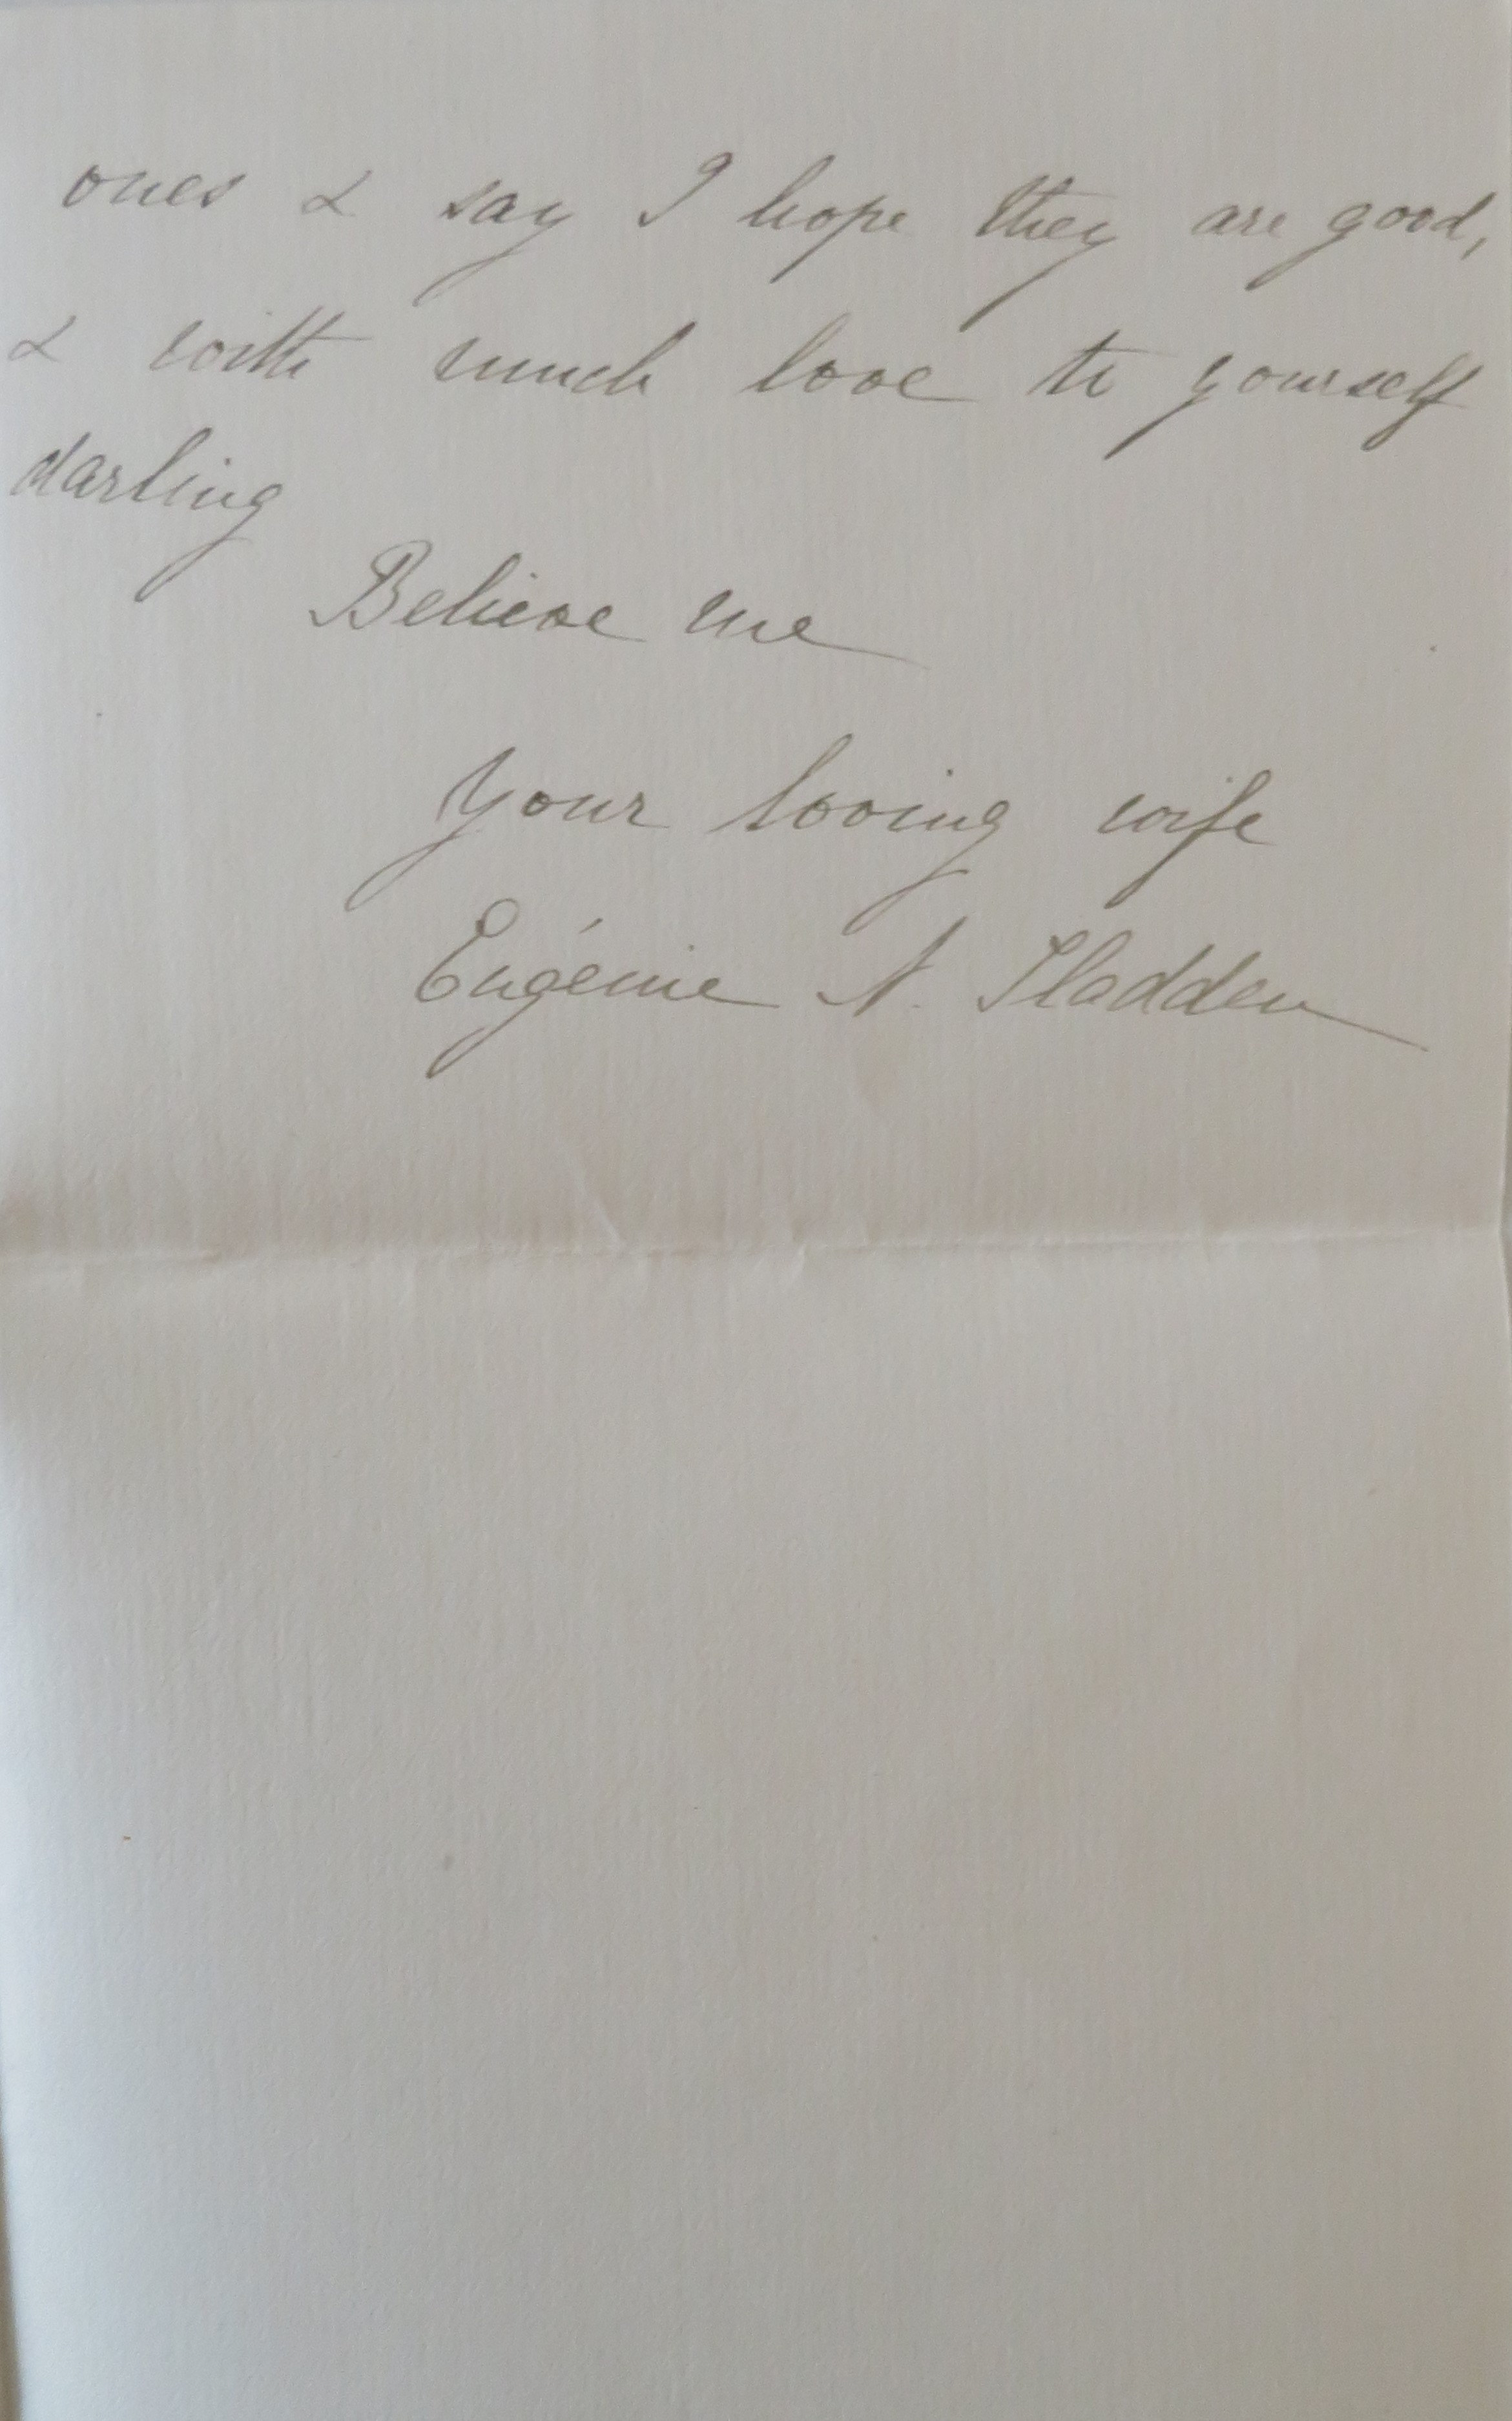 ones & say I hope they are good,
& with much love to yourself
darling
Believe me
Your loving wife
Eugénie N. Sladden